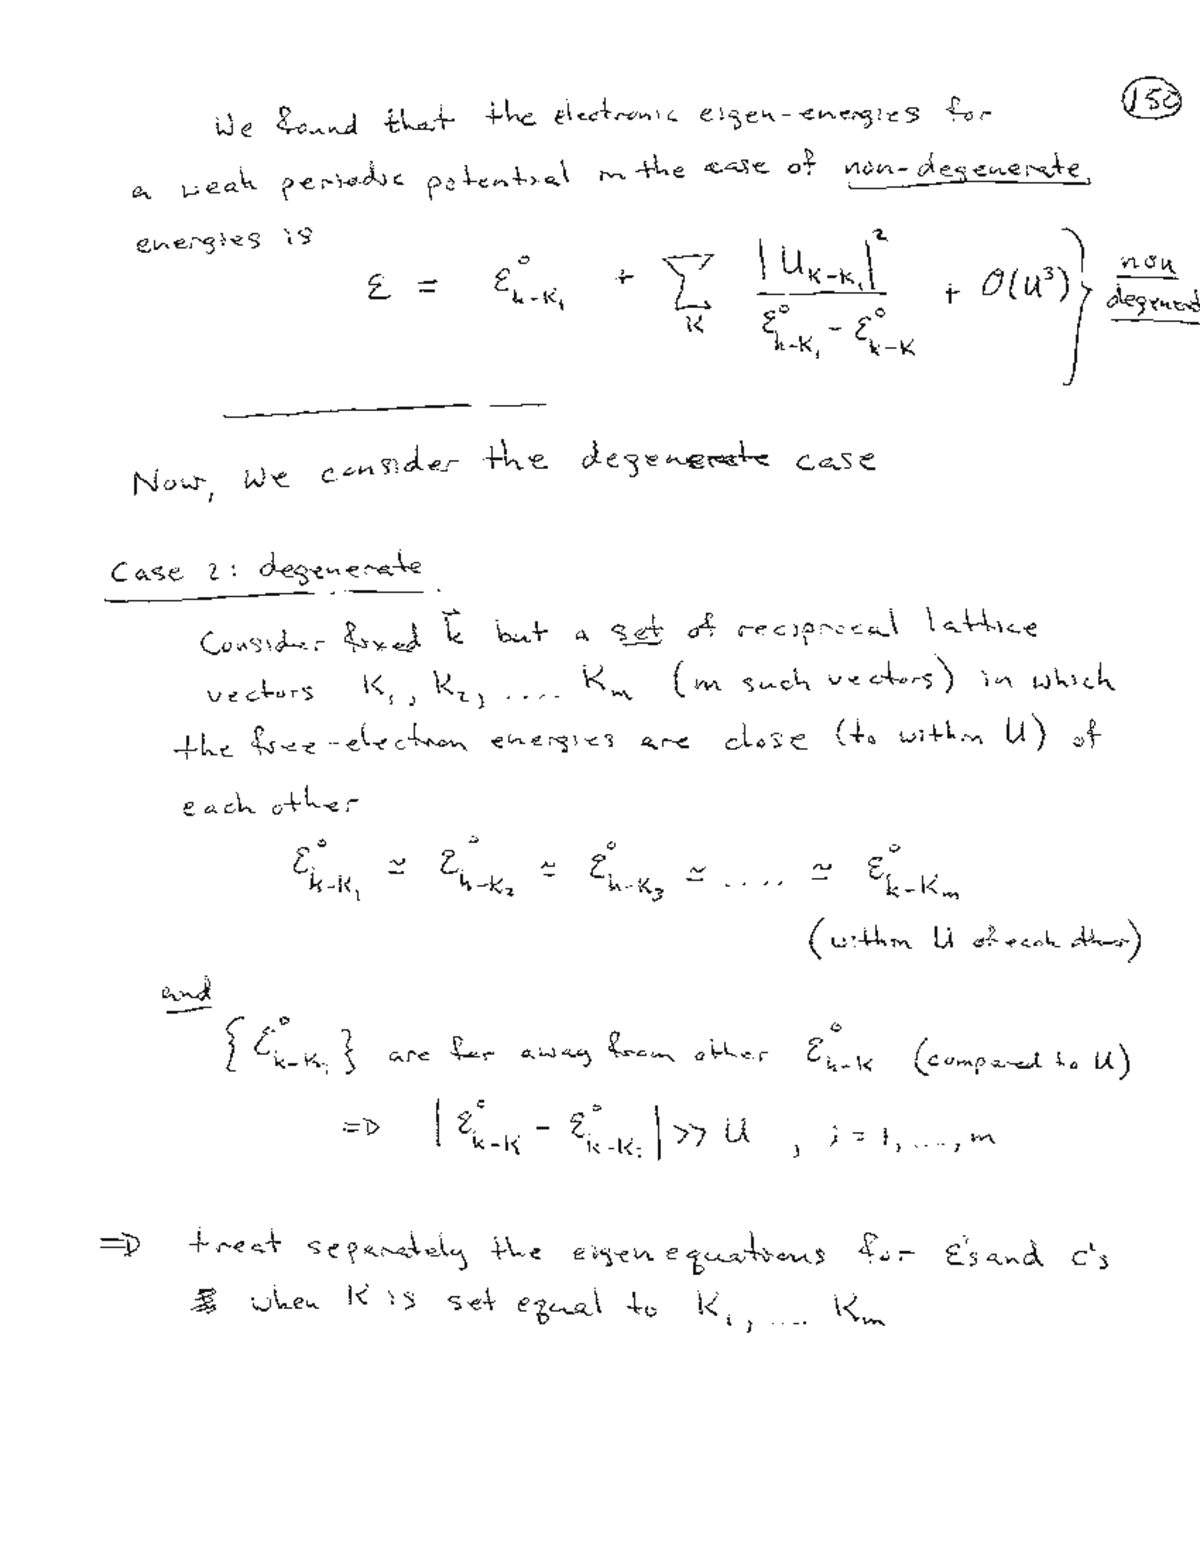 150
We found that the electronic eigen-energies for
a weak periodic potential in the case of non-degenerate
energies is
ε = ε⁰_{k-K₁} + Σ_K |U_{K-K₁}|² / (ε⁰_{k-K₁} - ε⁰_{k-K}) + O(U³) } non degenerat
Now, we consider the degenerate case
Case 2: degenerate
Consider fixed k⃗ but a set of reciprocal lattice
vectors K₁, K₂, .... K_m (m such vectors) in which
the free-electron energies are close (to within U) of
each other
ε⁰_{k-K₁} ≃ ε⁰_{k-K₂} ≃ ε⁰_{k-K₃} ≃ .... ≃ ε⁰_{k-K_m}
(within U of each other)
and
{ε⁰_{k-K_i}} are far away from other ε⁰_{k-K} (compared to U)
⇒ |ε⁰_{k-K} - ε⁰_{k-K_i}| >> U , i = 1, ...., m
⇒ treat separately the eigenequations for ε's and c's
when K is set equal to K₁, .... K_m